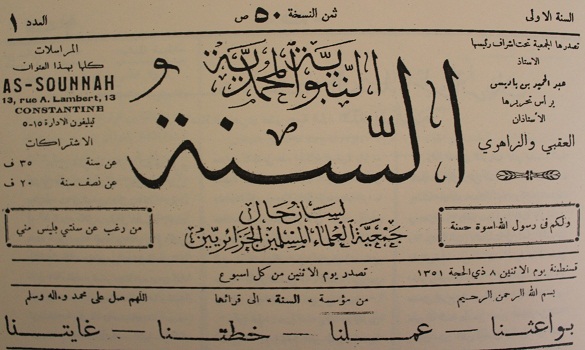 السنة الاولى
ثمن النسخة ٥٠ ص
العدد ١
تصدرها الجمعية تحت اشراف رئيسها
الاستاذ
عبد الحميد بن باديس
يرأس تحريرها
الاستاذان
العقبي والزاهري
السنة
النبوية المحمدية
المراسلات
كلها بهذا العنوان
AS-SOUNNAH
13, rue A. Lambert, 13
CONSTANTINE
تيليفون الادارة ١٥-٥
الاشتراكات
عن سنة ٣٥ ف
عن نصف سنة ٢٠ ف
ولكم في رسول الله اسوة حسنة
لسان حال
جمعية العلماء المسلمين الجزائريين
من رغب عن سنتي فليس مني
قسنطينة يوم الاثنين ٨ ذي الحجة ١٣٥١
تصدر يوم الاثنين من كل اسبوع
بسم الله الرحمن الرحيم
من مؤسسة - السنة - الى قرائها
اللهم صل على محمد وءاله وسلم
بواعثنا — عملنا — خطتنا — غايتنا